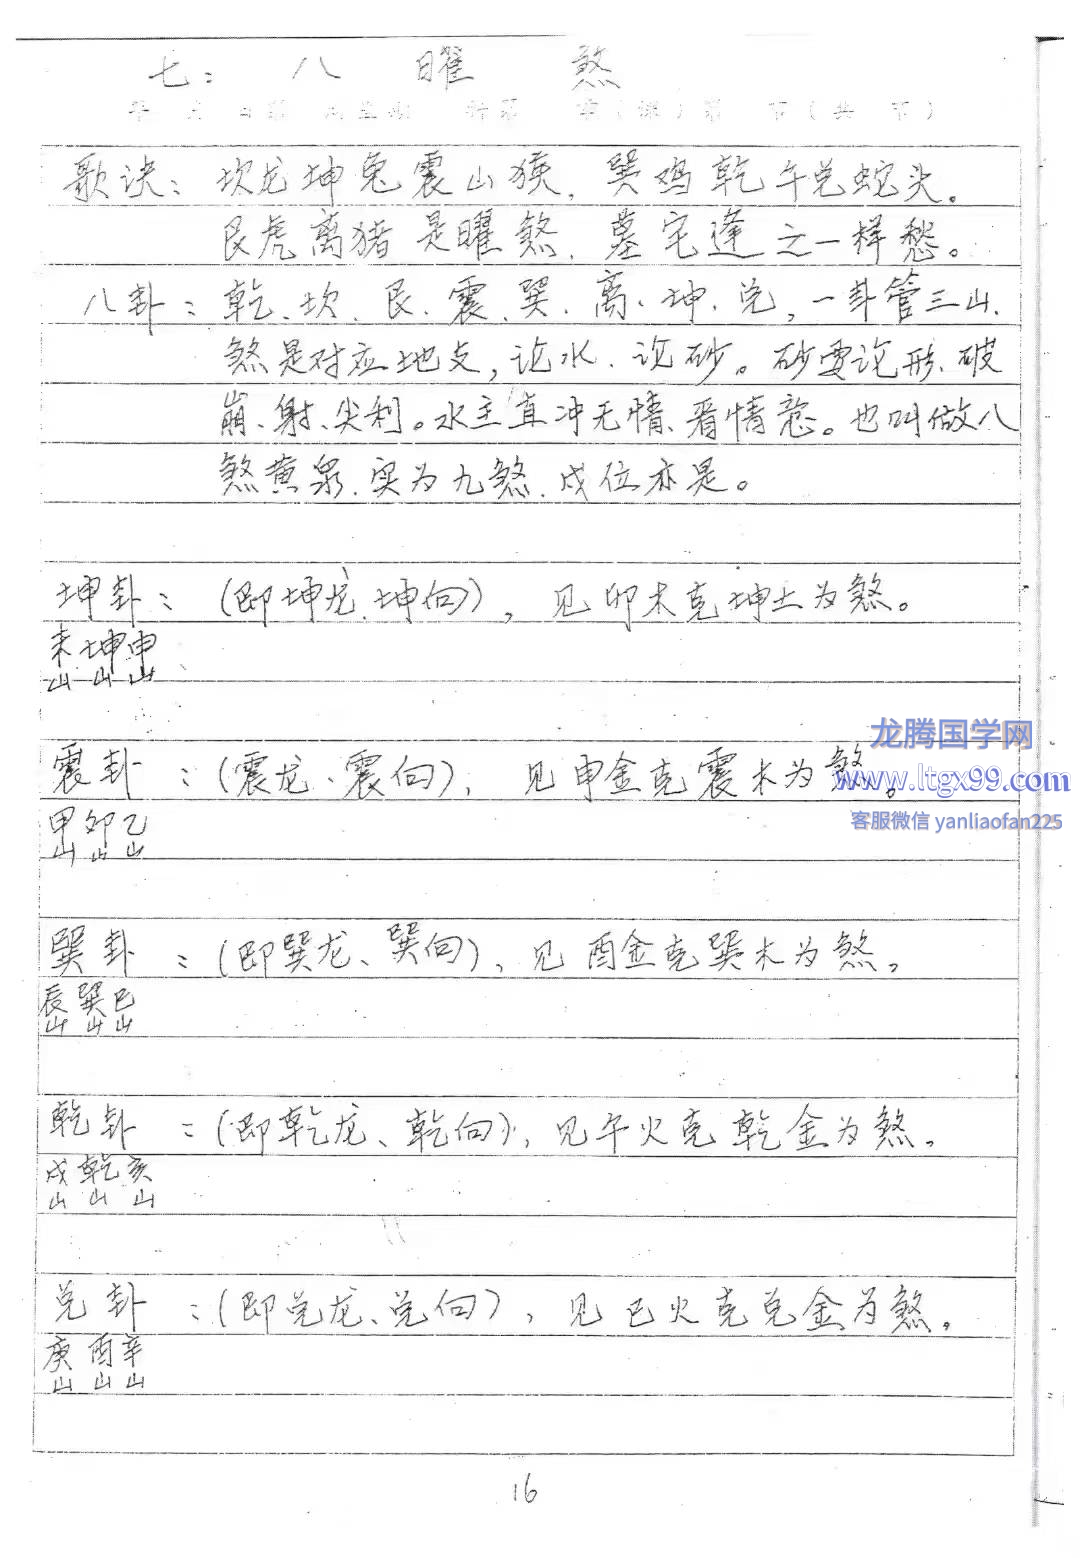 七：八曜煞
歌诀：坎龙坤兔震山猴，巽鸡乾午兑蛇头。
艮虎离猪是曜煞，墓宅逢之一样愁。
八卦：乾、坎、艮、震、巽、离、坤、兑，一卦管三山、
煞是对应地支，论水、论砂。砂要论形、破
崩、射、尖利。水主直冲无情、看情意。也叫做八
煞黄泉，实为九煞，戌位亦是。
坤卦：（即坤龙、坤向），见卯木克坤土为煞。
未坤申
山山山
龙腾国学网
震卦：（震龙、震向），见申金克震木为煞。
www.ltgx99.com
甲卯乙
客服微信 yanliaofan225
山山山
巽卦：（即巽龙、巽向），见酉金克巽木为煞。
辰巽巳
山山山
乾卦：（即乾龙、乾向），见午火克乾金为煞。
戌乾亥
山山山
兑卦：（即兑龙、兑向），见巳火克兑金为煞。
庚酉辛
山山山
16